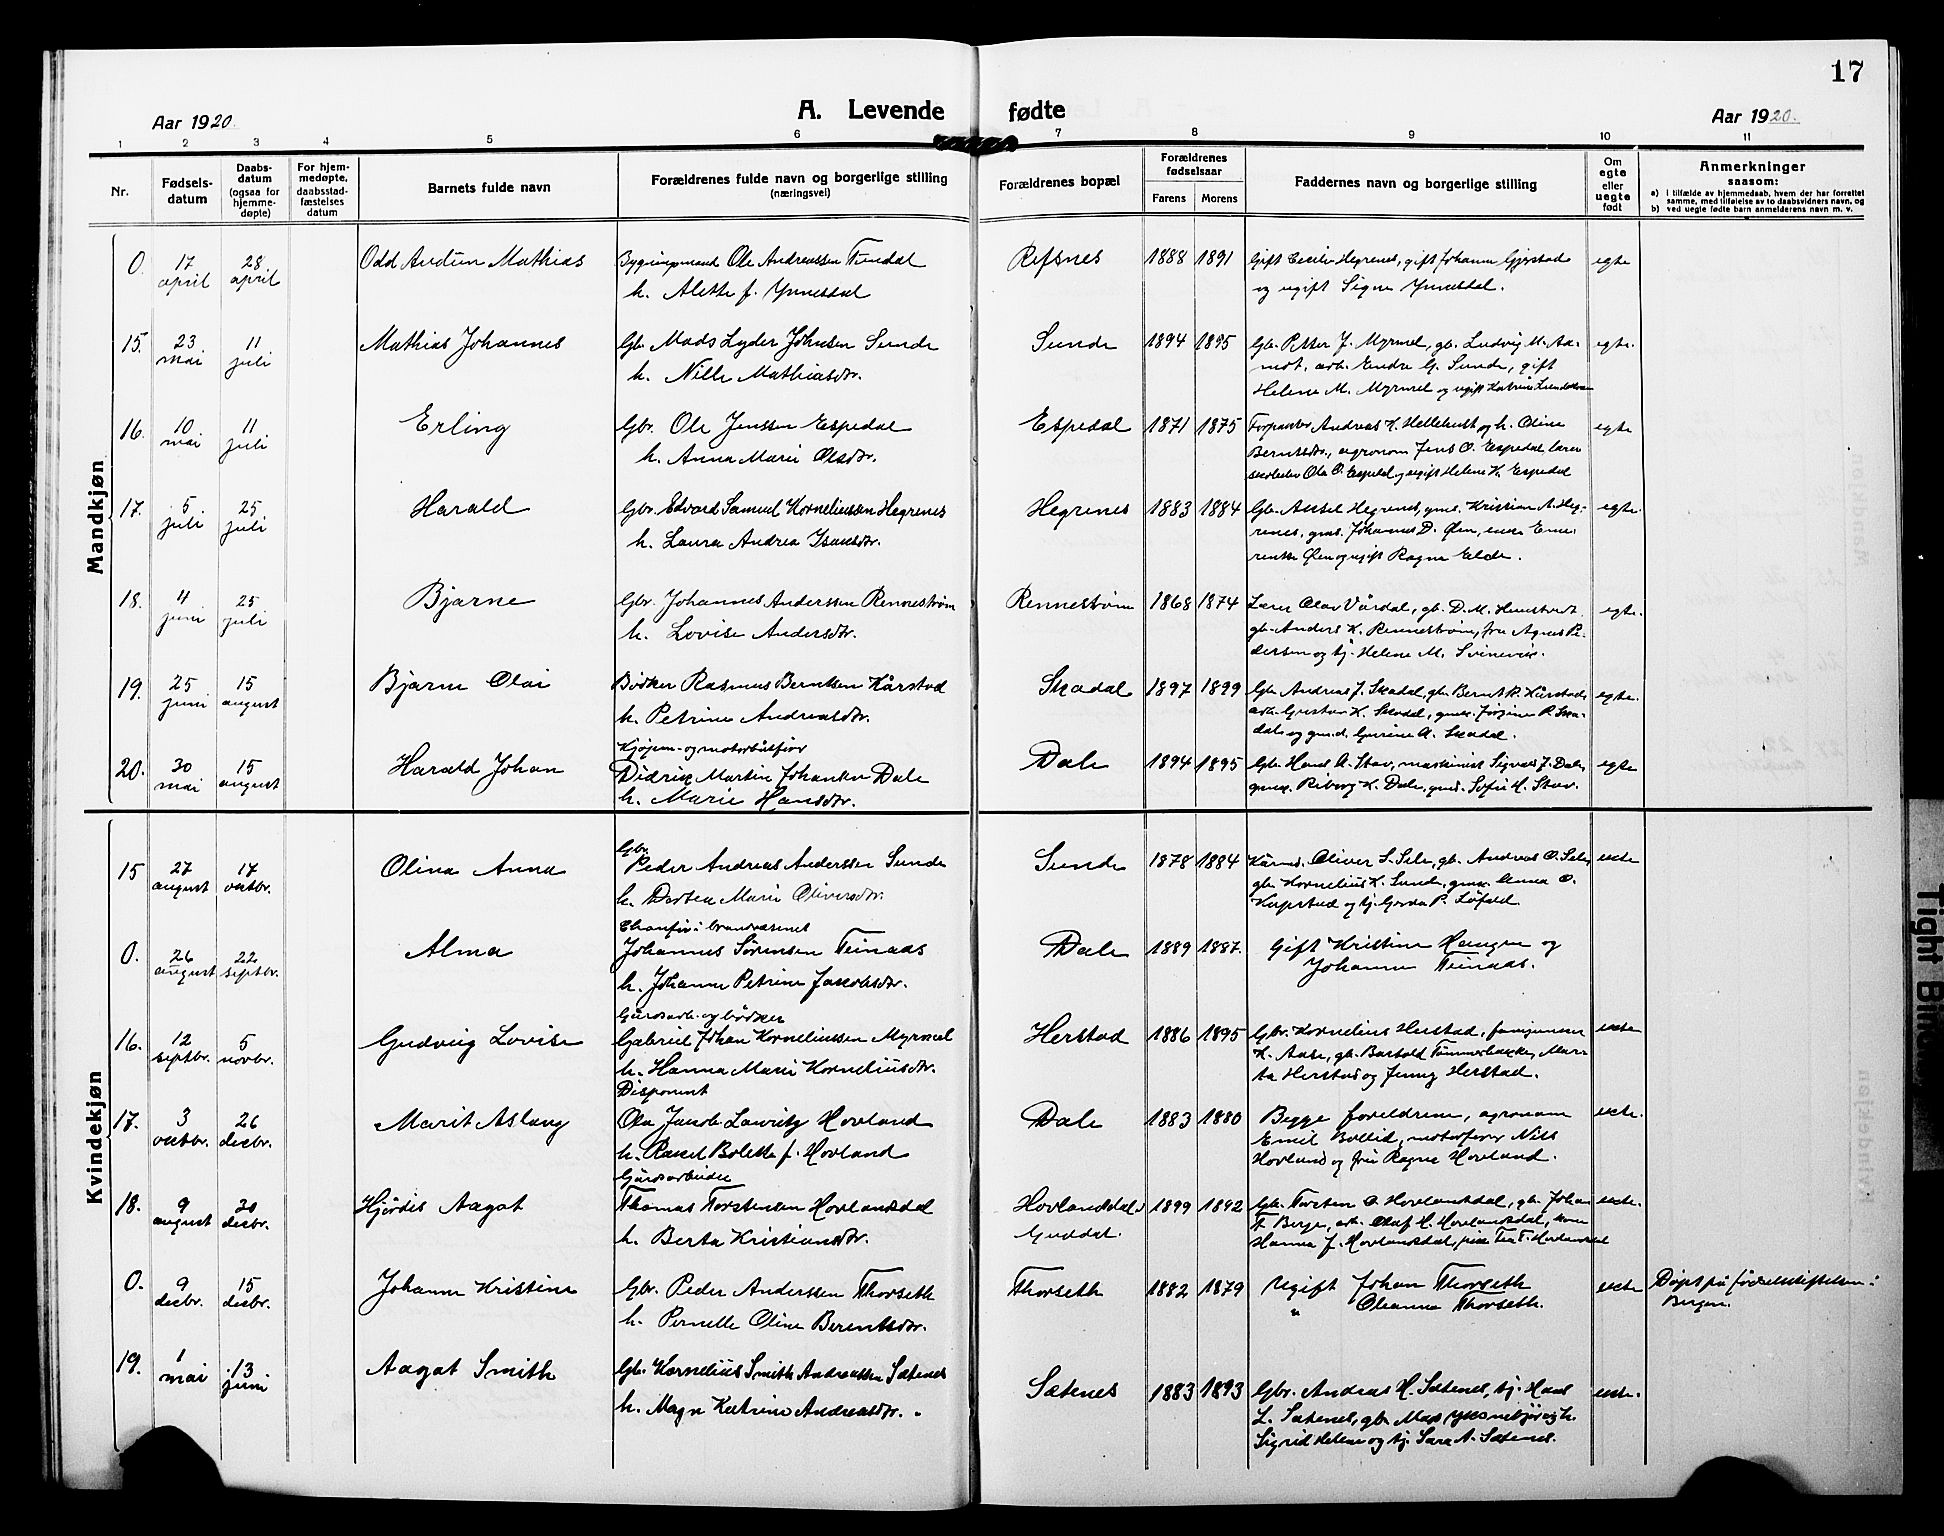 17
A. Levende fødte
Aar 1920.
Aar 1920.
1 2 3 4 5 6 7 8 9 10 11
Nr.
Fødsels-
datum
Daabs-
datum
(ogsaa for
hjemme-
døpte)
For hjem-
medøpte,
daabsstad-
fæstelses
datum
Barnets fulde navn
Forældrenes fulde navn og borgerlige stilling
(næringsvei)
Forældrenes bopæl
Forældrenes
fødselsaar
Farens Morens
Faddernes navn og borgerlige stilling
Om
egte
eller
uegte
født
Anmerkninger
saasom:
a) i tilfælde av hjemmedaab, hvem der har forrettet
samme, med tilføielse av to daabsvidners navn, og
b) ved uegte fødte barn anmelderens navn m. v.
Mandkjøn
0. 17 april 28 april Odd Audun Mathias Ole Andreassen Tundal Refsnes 1888 1891 Gift Cecilie Hegrenes, gift Johanne Gjerstad egte
h. Alette f. Ynnesdal og ugift Signe Ynnesdal.
15. 23 mai 11 juli Mathias Johannes Gbr. Mads Lyder Johnsen Sunde Sunde 1894 1895 Gbr. Petter J. Myrmel, gb. Ludvig M. Aa- egte.
h. Nille Mathiasdtr. mot, arb. Endre G. Sunde, gift
Helene M. Myrmel og ugift Katrine
16. 10 mai 11 juli Erling Gbr. Ole Jenssen Espedal Espedal 1871 1875 Andreas K. Hellebust og h. Oline egte
h. Anna Marie Olsdtr. Berntsdtr., agronom Jens O. Espedal
Ole O. Espedal og ugift Helene K. Espedal
17. 5 juli 25 juli Harald Gbr. Edvard Samuel Korneliussen Hegrenes Hegrenes 1883 1884 Gbr. Aksel Hegrenes, gmd. Kristian A. Heg- egte.
h. Laura Andrea Isaksdtr. renes, gmd. Johannes D. Øen, enke Eme-
rentse Øen og ugift Ragna Elde.
18. 4 juni 25 juli Bjarne Gbr. Johannes Anderssen Rennestrøm Rennestrøm 1868 1874 Lærer Olav Vårdal, gb. D. M. egte.
h. Lovise Andersdtr. gb. Anders K. Rennestrøm, fru Agnes Pe-
dersen og tj. Helene M. Svinevik.
19. 25 juni 15 august Bjarne Olai Bødker Rasmus Berntsen Kårstad Skadal 1897 1899 Gbr. Andreas J. Skadal, gbr. Bernt R. Kårstad, egte.
h. Petrine Andreasdtr. arb. Gustav K. Skadal, gmk. Jørgine R. Ska-
dal og gmd. Gurine A. Skadal.
Kjøpm- og motorbåtfør
20. 30 mai 15 august Harald Johan Didrik Martin Johansen Dale Dale 1894 1895 Gbr. Hans A. Stav, maskinist Sigvald J. Dale, egte
h. Marie Hansdtr. gmk. Riborg K. Dale, gmd. Sofie H. Stav.
Kvindekjøn
Gbr.
15 27 august 17 oktbr. Olina Anna Peder Andreas Anderssen Sunde Sunde 1878 1884 Kårmd. Oliver S. Sele, gb. Andreas O. Sele, ekte
h. Dortea Marie Oliversdtr. gb. Kornelius K. Sunde, gmk. Anna O.
Karstad og tj. Gerda P. Løfald.
0. 26 august 22 septbr. Alma Johannes Sørensen Teinaas Dale 1889 1887. Gift Kristine Haugen og
h. Johanne Petrine Jacobsdtr. Johanne Teinaas.
Gårdsarb. og bødker
16. 12 septbr. 5 novbr. Gudveig Lovise Gabriel Johan Korneliussen Myrmel Herstad 1886 1895 Gbr. Kornelius Herstad, ekte
h. Hanna Marie Korneliusdtr. K. Aase, gb. Bartold Tømmerbakke, Mar-
ta Herstad og Jenny Herstad.
Disponent
17. 3 oktbr. 26 decbr. Marit Aslaug Ola Jacob Lauritz Hovland Dale 1883 1880 Begge foreldrene, agronom ekte.
h. Rakel Bolette f. Hovland Emil Bollid, motorfører Nils
Hovland og frk Ragna Hovland.
Gårdsarbeider
18. 9 august 30 decbr. Hjördis Aagot Thomas Torstensen Hovlandsdal Hovlandsdal, 1899 1892 Gbr. Torsten O. Hovlandsdal, gbr. Johan ekte.
h. Berta Kristiansdtr. Guddal. T. Berge, arb. Olaf H. Hovlandsdal, kone
Hanna J. Hovlandsdal,
0. 9 decbr. 15 decbr. Johanne Kristine Gbr. Peder Anderssen Thorseth Thorseth 1882 1879 Ugift Johan Thorseth ekte Døpt på fødselsstiftelsen i
h. Pernelle Oline Berentsdtr. " Oleanna Thorseth. Bergen.
19. 1 mai 13 juni Aagot Smith Gbr. Kornelius Smith Andreassen Sætenes Sætenes 1883 1893 Gbr. Andreas H. Sætenes, tj. Hans ekte.
h. Magn. Katrine Andreasdtr. L. Sætenes, gb. Mads Yksnebjør og h.
Sigrid Helene og tj. Sara A. Sætenes.
Tight Bin